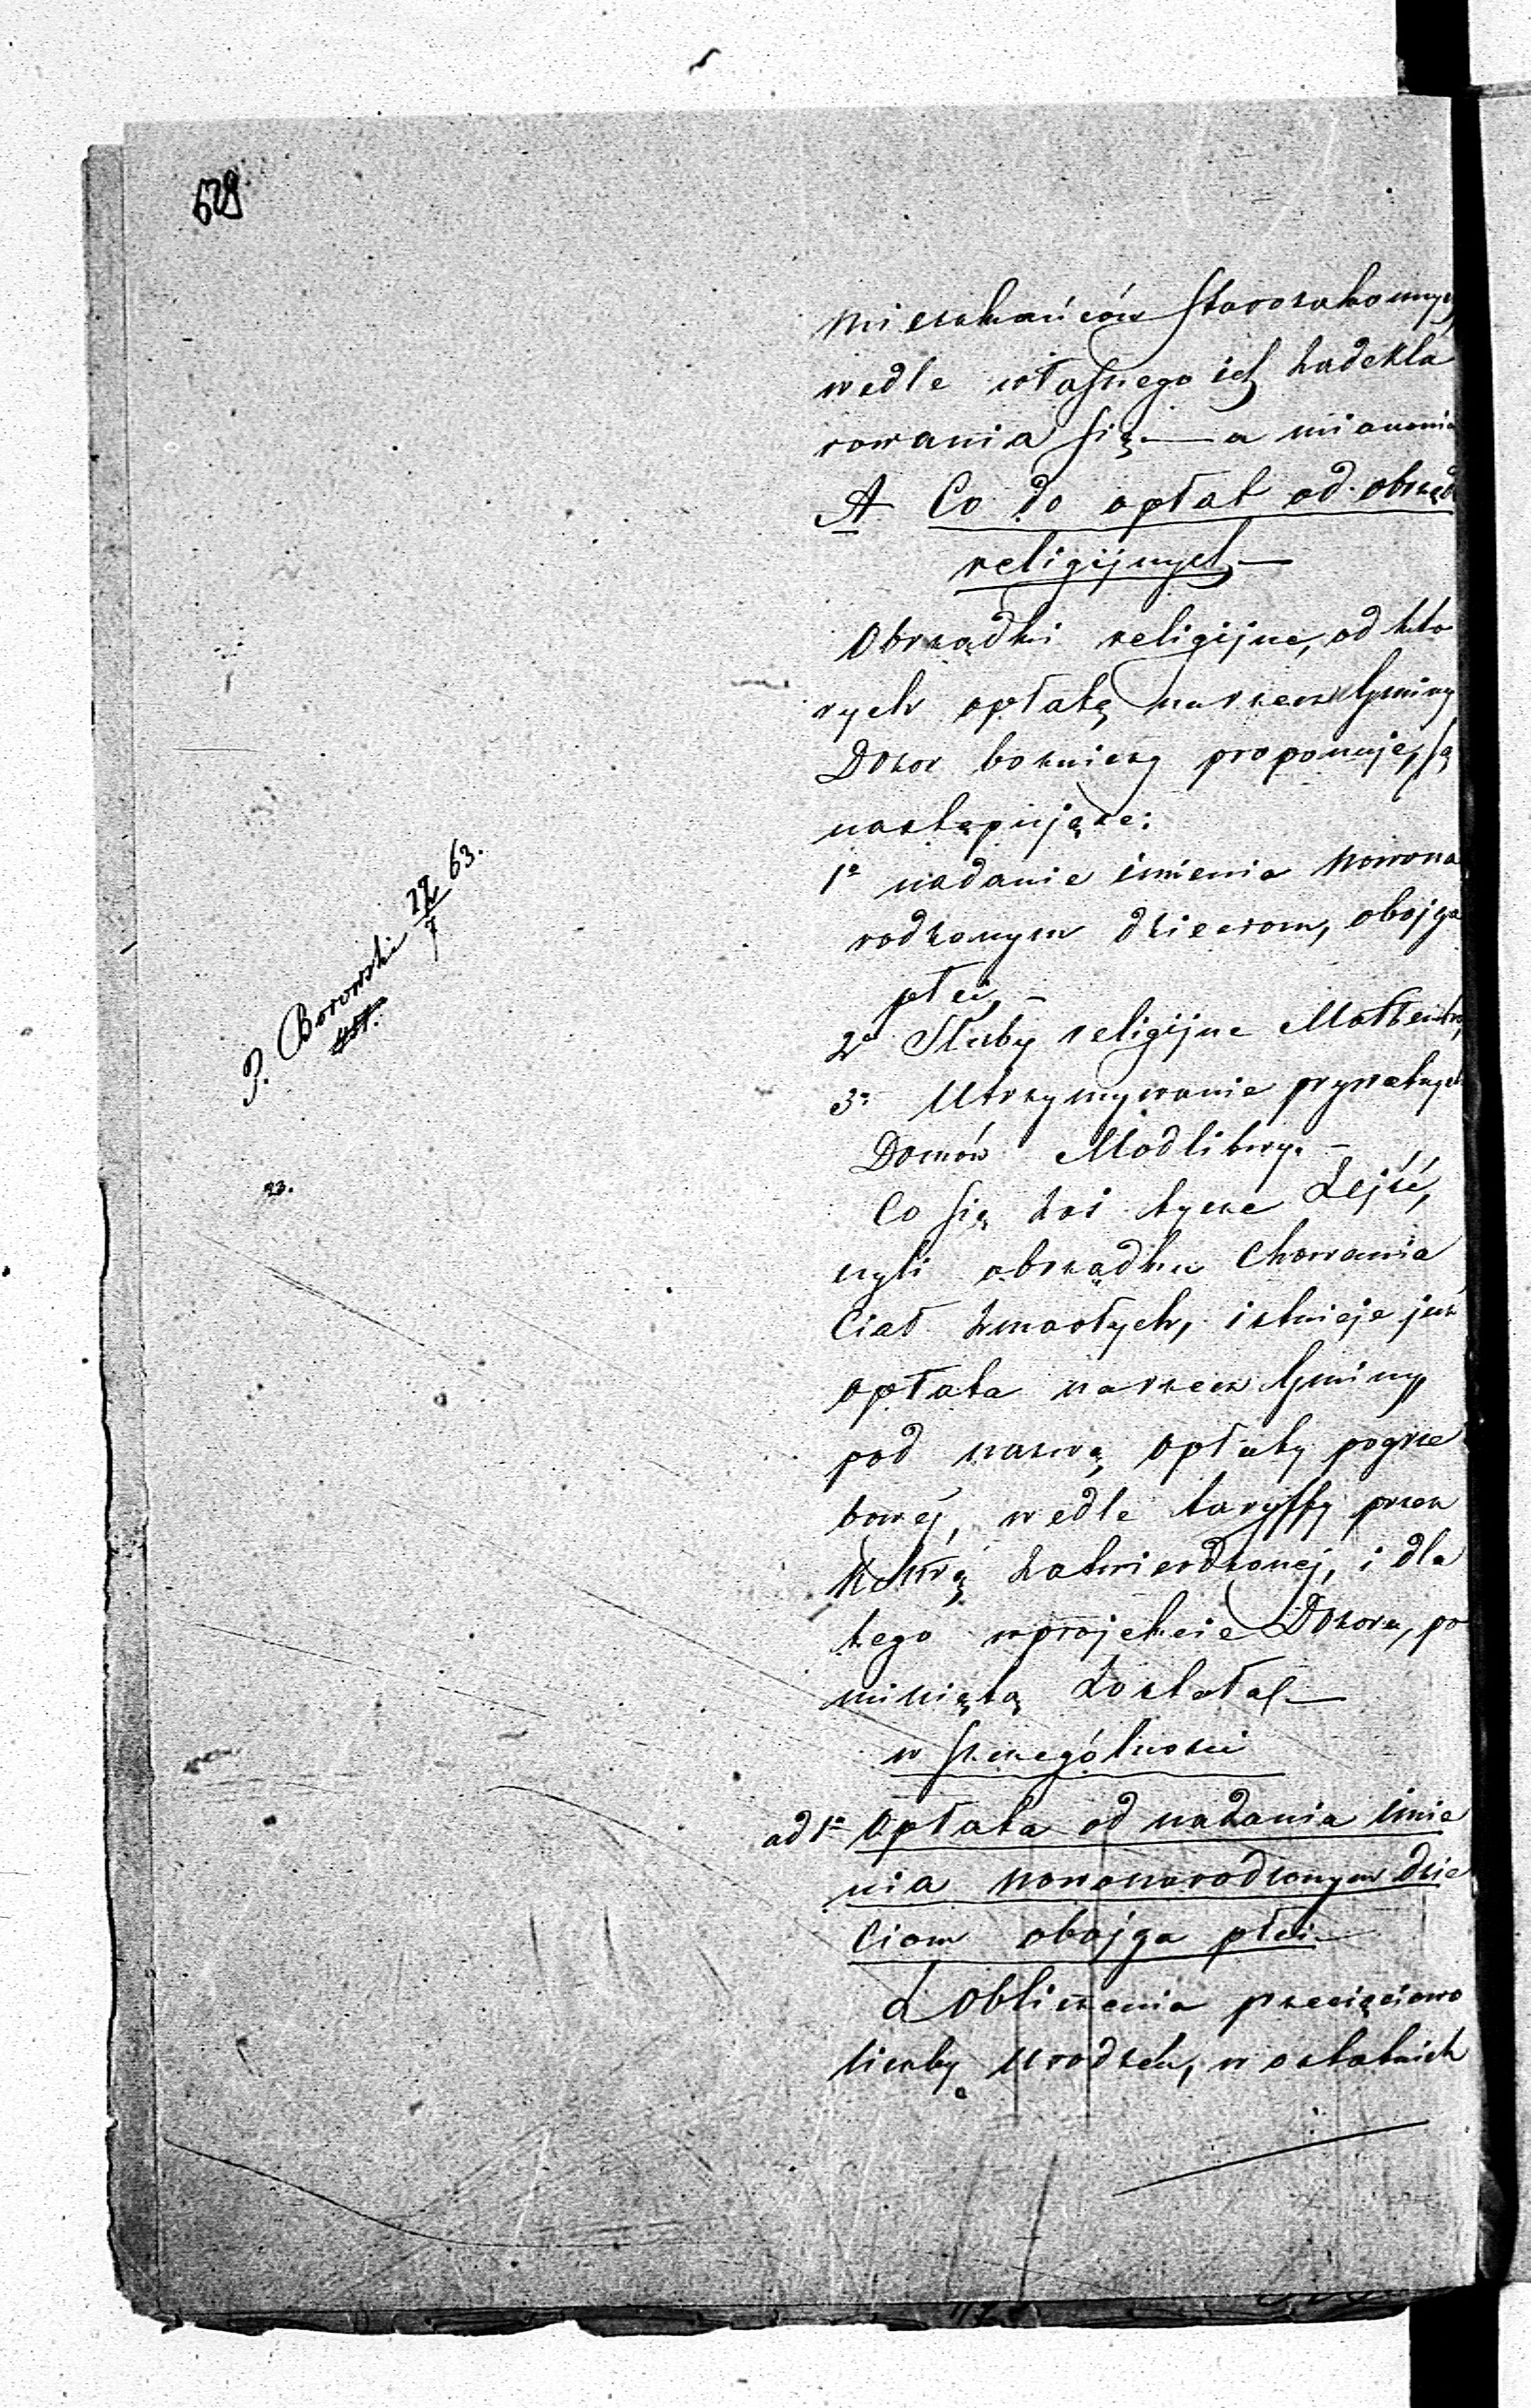 629
mieszkańców starozakonnyc
wedle własnego ich zadekla
rowania się — a mianowi
A Co do opłat od obrząd
religijnych —
Obrządki religijne, od któ
rych opłatę na rzecz Gminy
Dozor bożniczy proponuje, są
następujące:
1o nadanie imienia nowona
rodzonym dzieciom, obojga
płci, —
2o Śluby religijne Małżeńskie,
3o Utrzymywanie prywatnych
Domów Modlitwy. —
Co się zaś tycze Zejść,
czyli obrządku chowania
Ciał zmarłych, istnieje już
opłata na rzecz Gminy,
pod nazwą opłaty pogrze
bowéj, wedle taryffy przez
zatwierdzonej, i dla
tego w projekcie Dozoru, po
miniętą została —
w szczególności
ad 1o Opłata od nadania imie
nia nowonarodzonym dzie
ciom obojga płci —
Z Obliczenia przecięciowo
liczby urodzeń, w ostatnich
P. Borowski 22/7 63.
23.